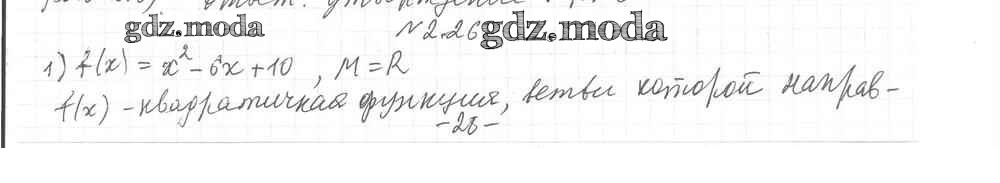 ответ: утверждение
№2.26 gdz.moda
gdz.moda
1) f(x) = x² - 6x + 10 , M = R
f(x) - квадратичная функция, ветви которой направ-
- 26 -